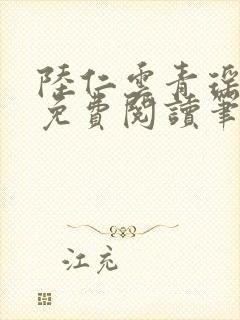 陸仁雲青瑤
免費閱讀筆
江充